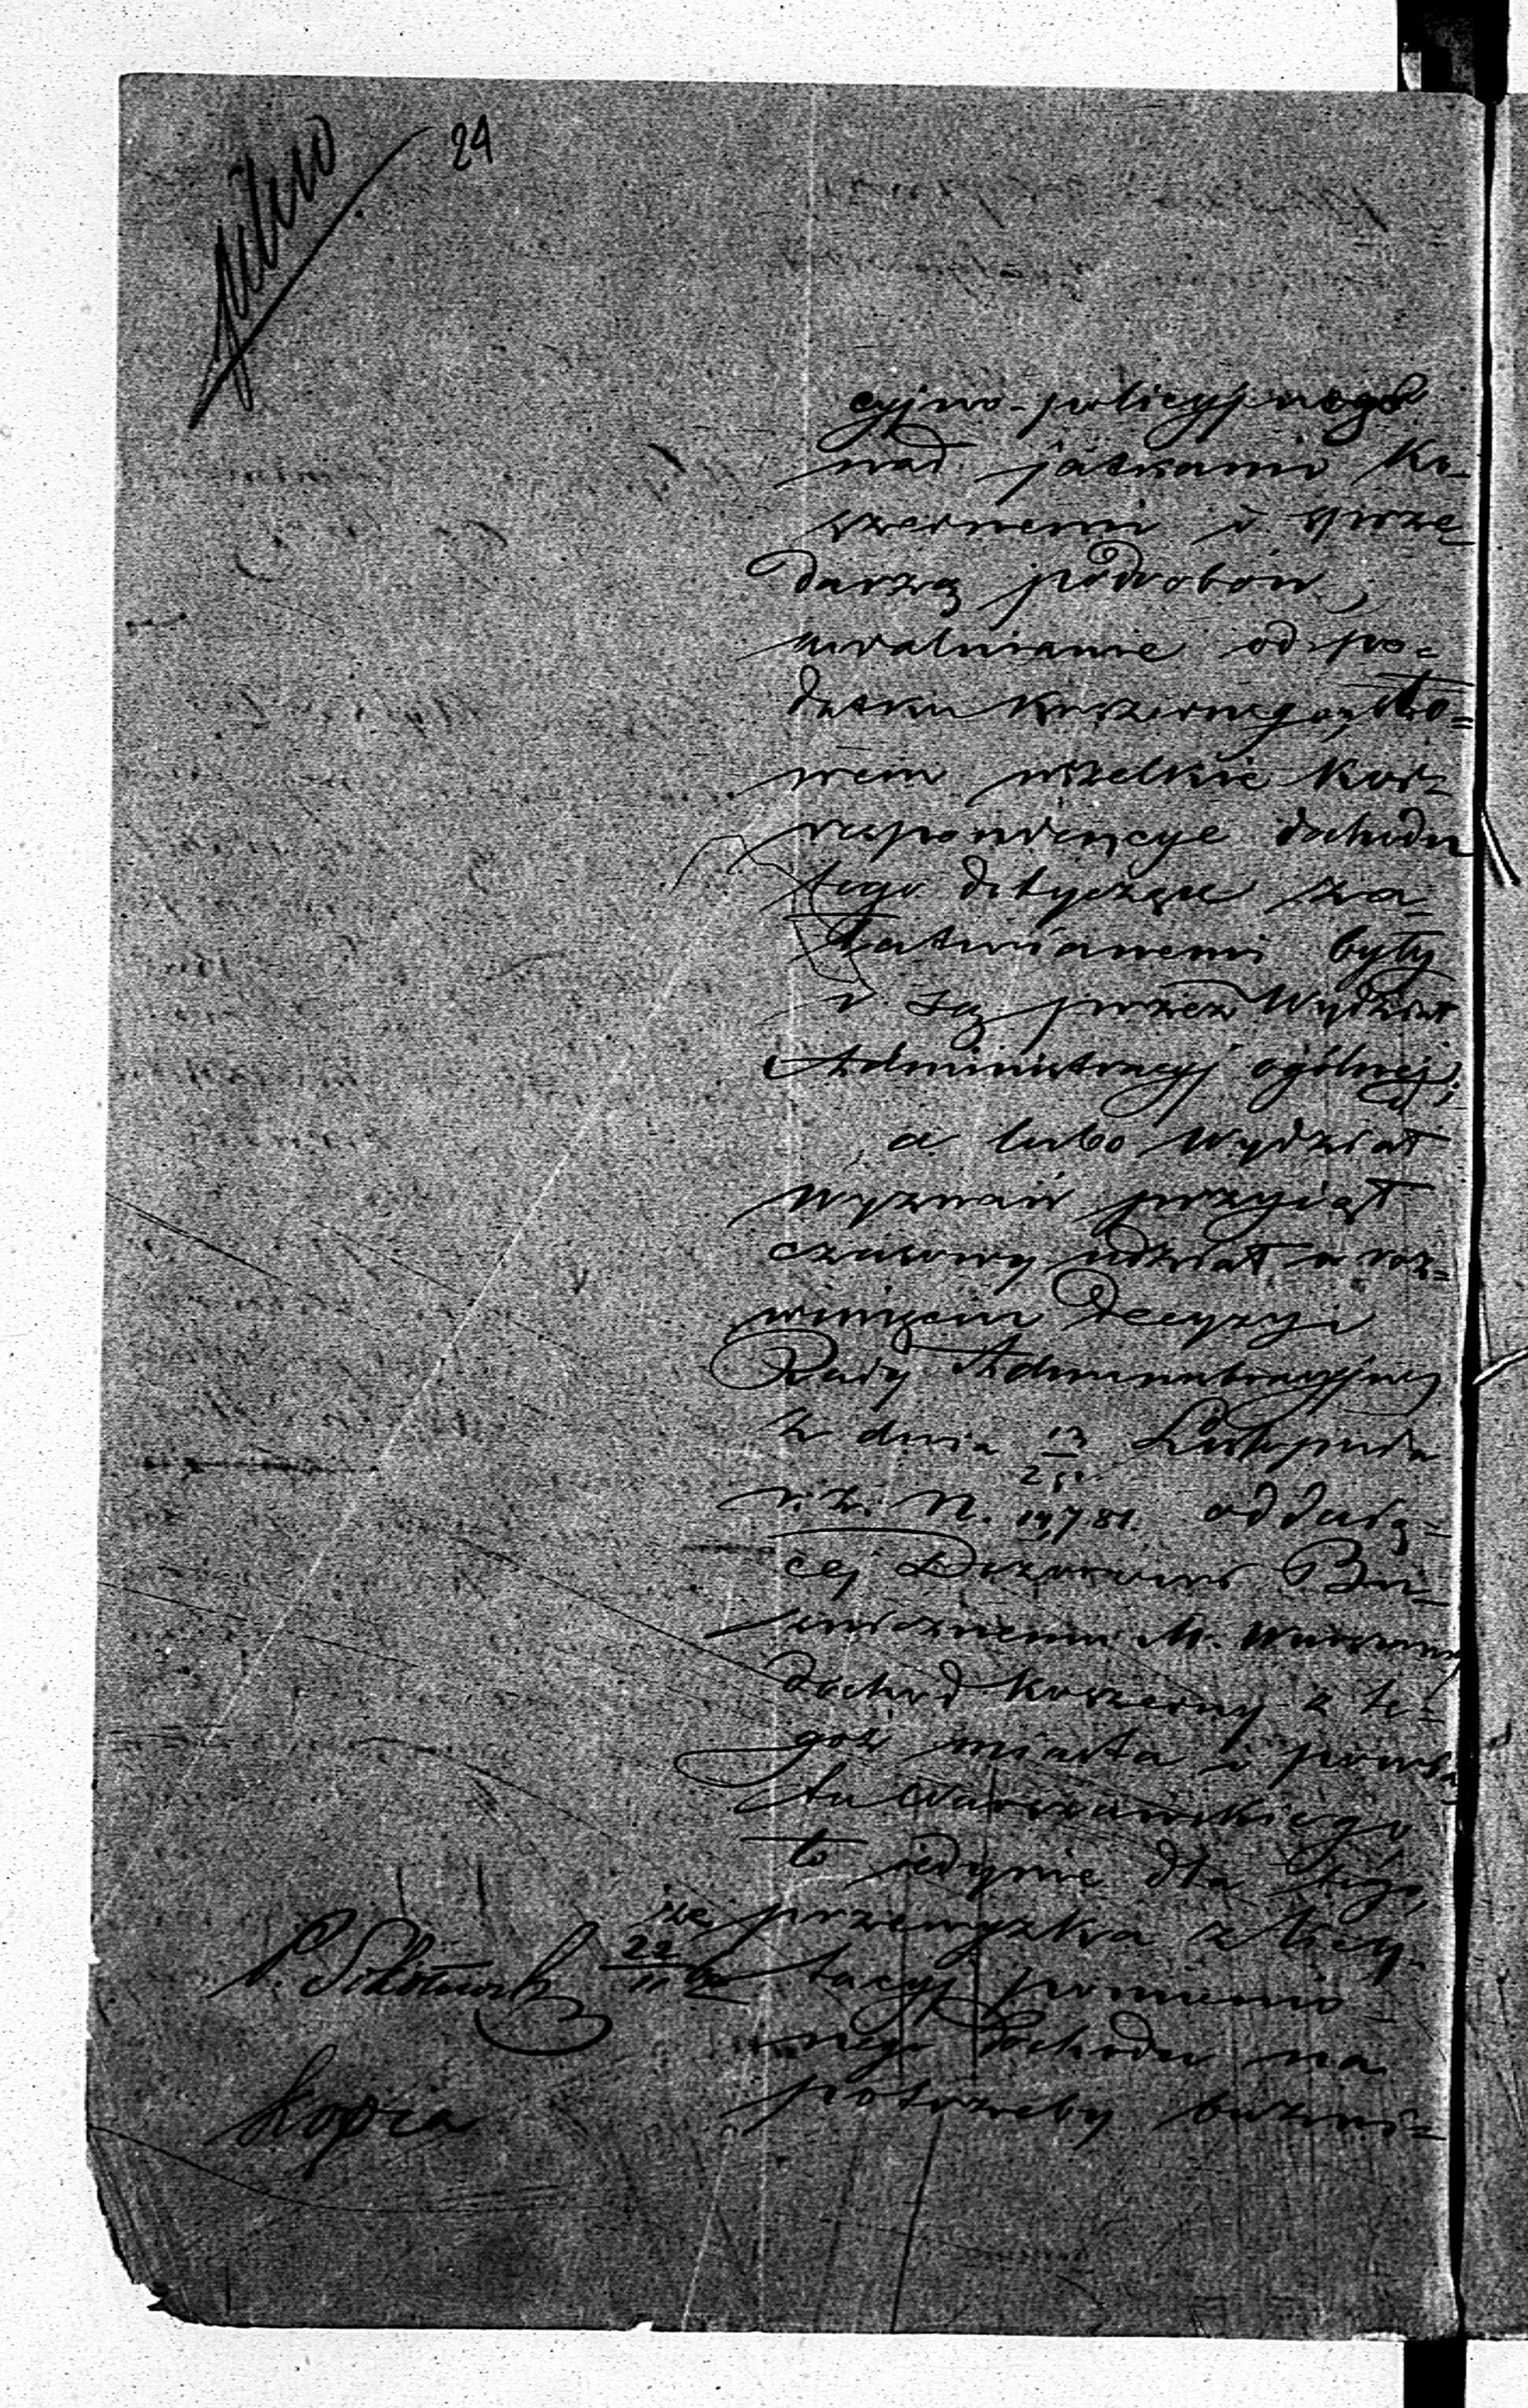 pilno
24
cyjno-policyjnego
nad jatkami ko-
szernemi i sprze
darzą podrobów,
uwalnianie od po=
datku koszernego, sło=
wem wszelkie kor-
respondencye dochodu
tego dotyczące za-
łatwianemi były
i są przez Wydział
Administracyj ogólnej;
a lubo Wydział
Wyznań przyjął
czasowy udział w roz=
winięciu decyzyi
Rady Administracyjnej
z dnia 13/25 Listopada
r. z. N. 19,781. oddają=
cej Dozorowi Bu-
źnicznemu M. Warszawy
dochód koszerny z te-
goż miasta i powia
tu Warszawskiego
to jedynie dla tego,
że przewyżka z licy-
tacyj pomienio
nego dochodu na
potrzeby buźni=
22/11
Kopia